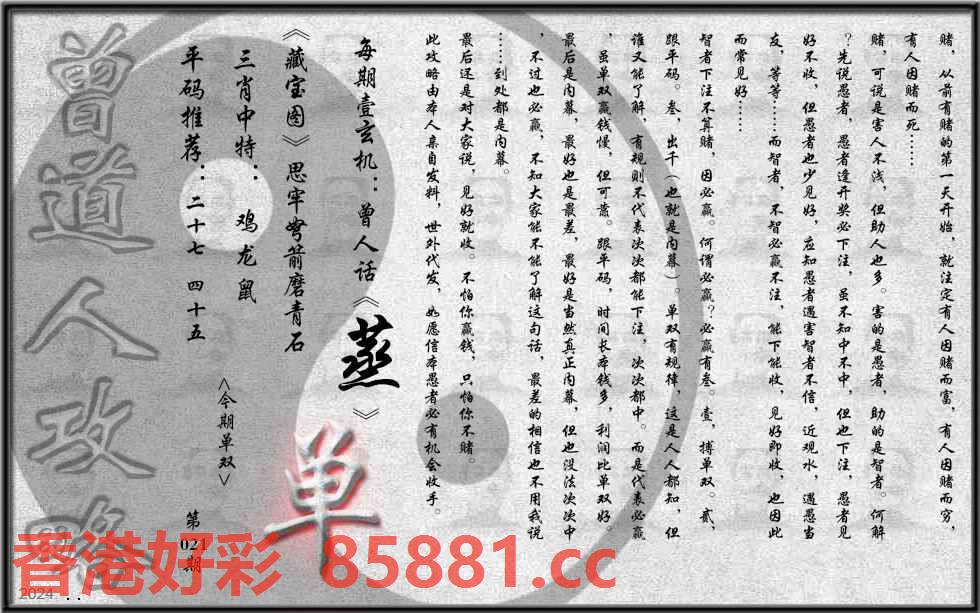 赌，从前有赌的第一天开始，就注定有人因赌而富，有人因赌而穷，
有人因赌而死……
赌，可说是害人不浅，但助人也多。害的是愚者，助的是智者。何解
？先说愚者，愚者逢开奖必下注，虽不知中不中，但也下注，愚者见
好不收，但愚者也少见好，应知愚者遇害智者不信，近观水，遇愚当
友，等等……而智者，不智必赢不注，能下能收，见好即收，也因此
而常见好……
智者下注不算赌，因必赢。何谓必赢？必赢有叁。壹，搏单双。贰，
跟平码。叁，出千（也就是内幕）。单双有规律，这是人人都知，但
谁又能了解，有规则不代表次次都能下注，次次都中。而是代表必赢
，虽单双赢钱慢，但可靠。跟平码，时间长本钱多，利润比单双好。
最后是内幕，最好也是最差，最好是当然真正内幕，但也没法次次中
，不过也必赢，不知大家能不能了解这句话，最差的相信也不用我说
……到处都是内幕。
最后还是对大家说，见好就收。不怕你赢钱，只怕你不赌。
此攻略由本人亲自发料，世外代发，如愿信本愚者必有机会收手。
每期壹玄机：曾人话《蒸》
《藏宝图》思牢弩箭磨青石
三肖中特：鸡龙鼠
平码推荐：二十七 四十五
<今期单双>
单
第
021
期
曾道人攻略
香港好彩 85881.cc
2024